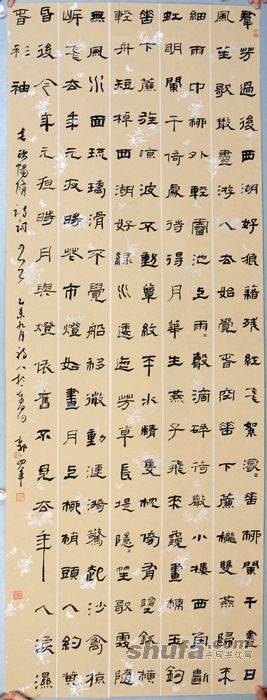 羣芳過後西湖好狼藉殘紅飛絮濛濛垂柳闌干盡日
風笙歌散盡遊人去始覺春空垂下簾櫳雙燕歸來
細雨中柳外輕雷池上雨雨聲滴碎荷聲小樓西角斷
虹明闌干倚處待得月華生燕子飛來窺畫棟玉鈎
垂下簾旌涼波不動簟紋平水精雙枕傍有墮釵橫
輕舟短棹西湖好綠水逶迤芳草長堤隱隱笙歌處處隨
無風水面琉璃滑不覺船移微動漣漪驚起沙禽掠
岸飛去年元夜時花市燈如晝月上柳梢頭人約黃
昏後今年元夜時月與燈依舊不見去年人淚濕
春衫袖 歐陽脩詩詞 乙未九月
shufa.com